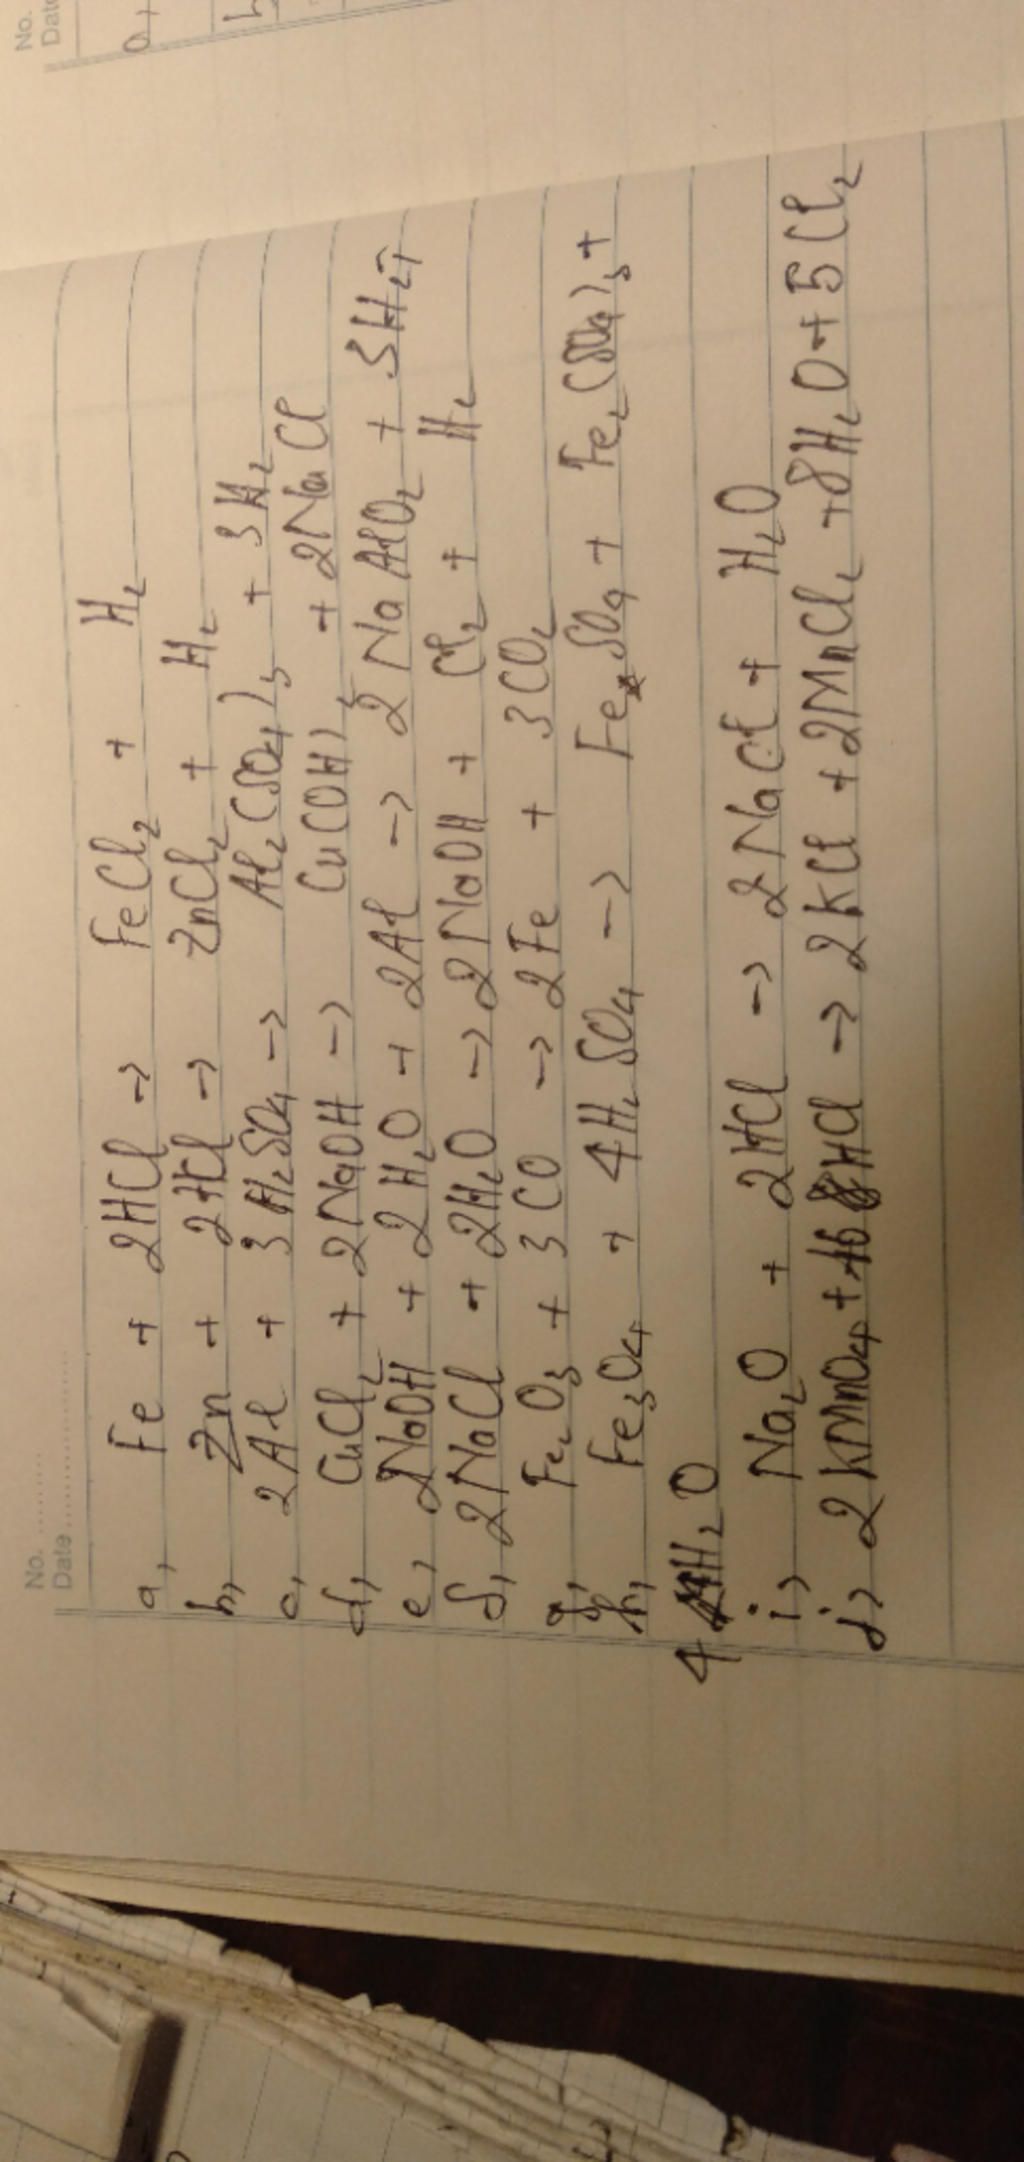 No. ..........
Date ....................
a, Fe + 2HCl -> FeCl₂ + H₂
b, Zn + 2HCl -> ZnCl₂ + H₂
c, 2Al + 3H₂SO₄ -> Al₂(SO₄)₃ + 3H₂
d, CuCl₂ + 2NaOH -> Cu(OH)₂ + 2NaCl
e, 2NaOH + 2H₂O + 2Al -> 2NaAlO₂ + 3H₂↑
f, 2NaCl + 2H₂O -> 2NaOH + Cl₂ + H₂
g, Fe₂O₃ + 3CO -> 2Fe + 3CO₂
h, Fe₃O₄ + 4H₂SO₄ -> FeSO₄ + Fe₂(SO₄)₃ +
4H₂O
i, Na₂O + 2HCl -> 2NaCl + H₂O
j, 2KMnO₄ + 16HCl -> 2KCl + 2MnCl₂ + 8H₂O + 5Cl₂
No.
Date
a,